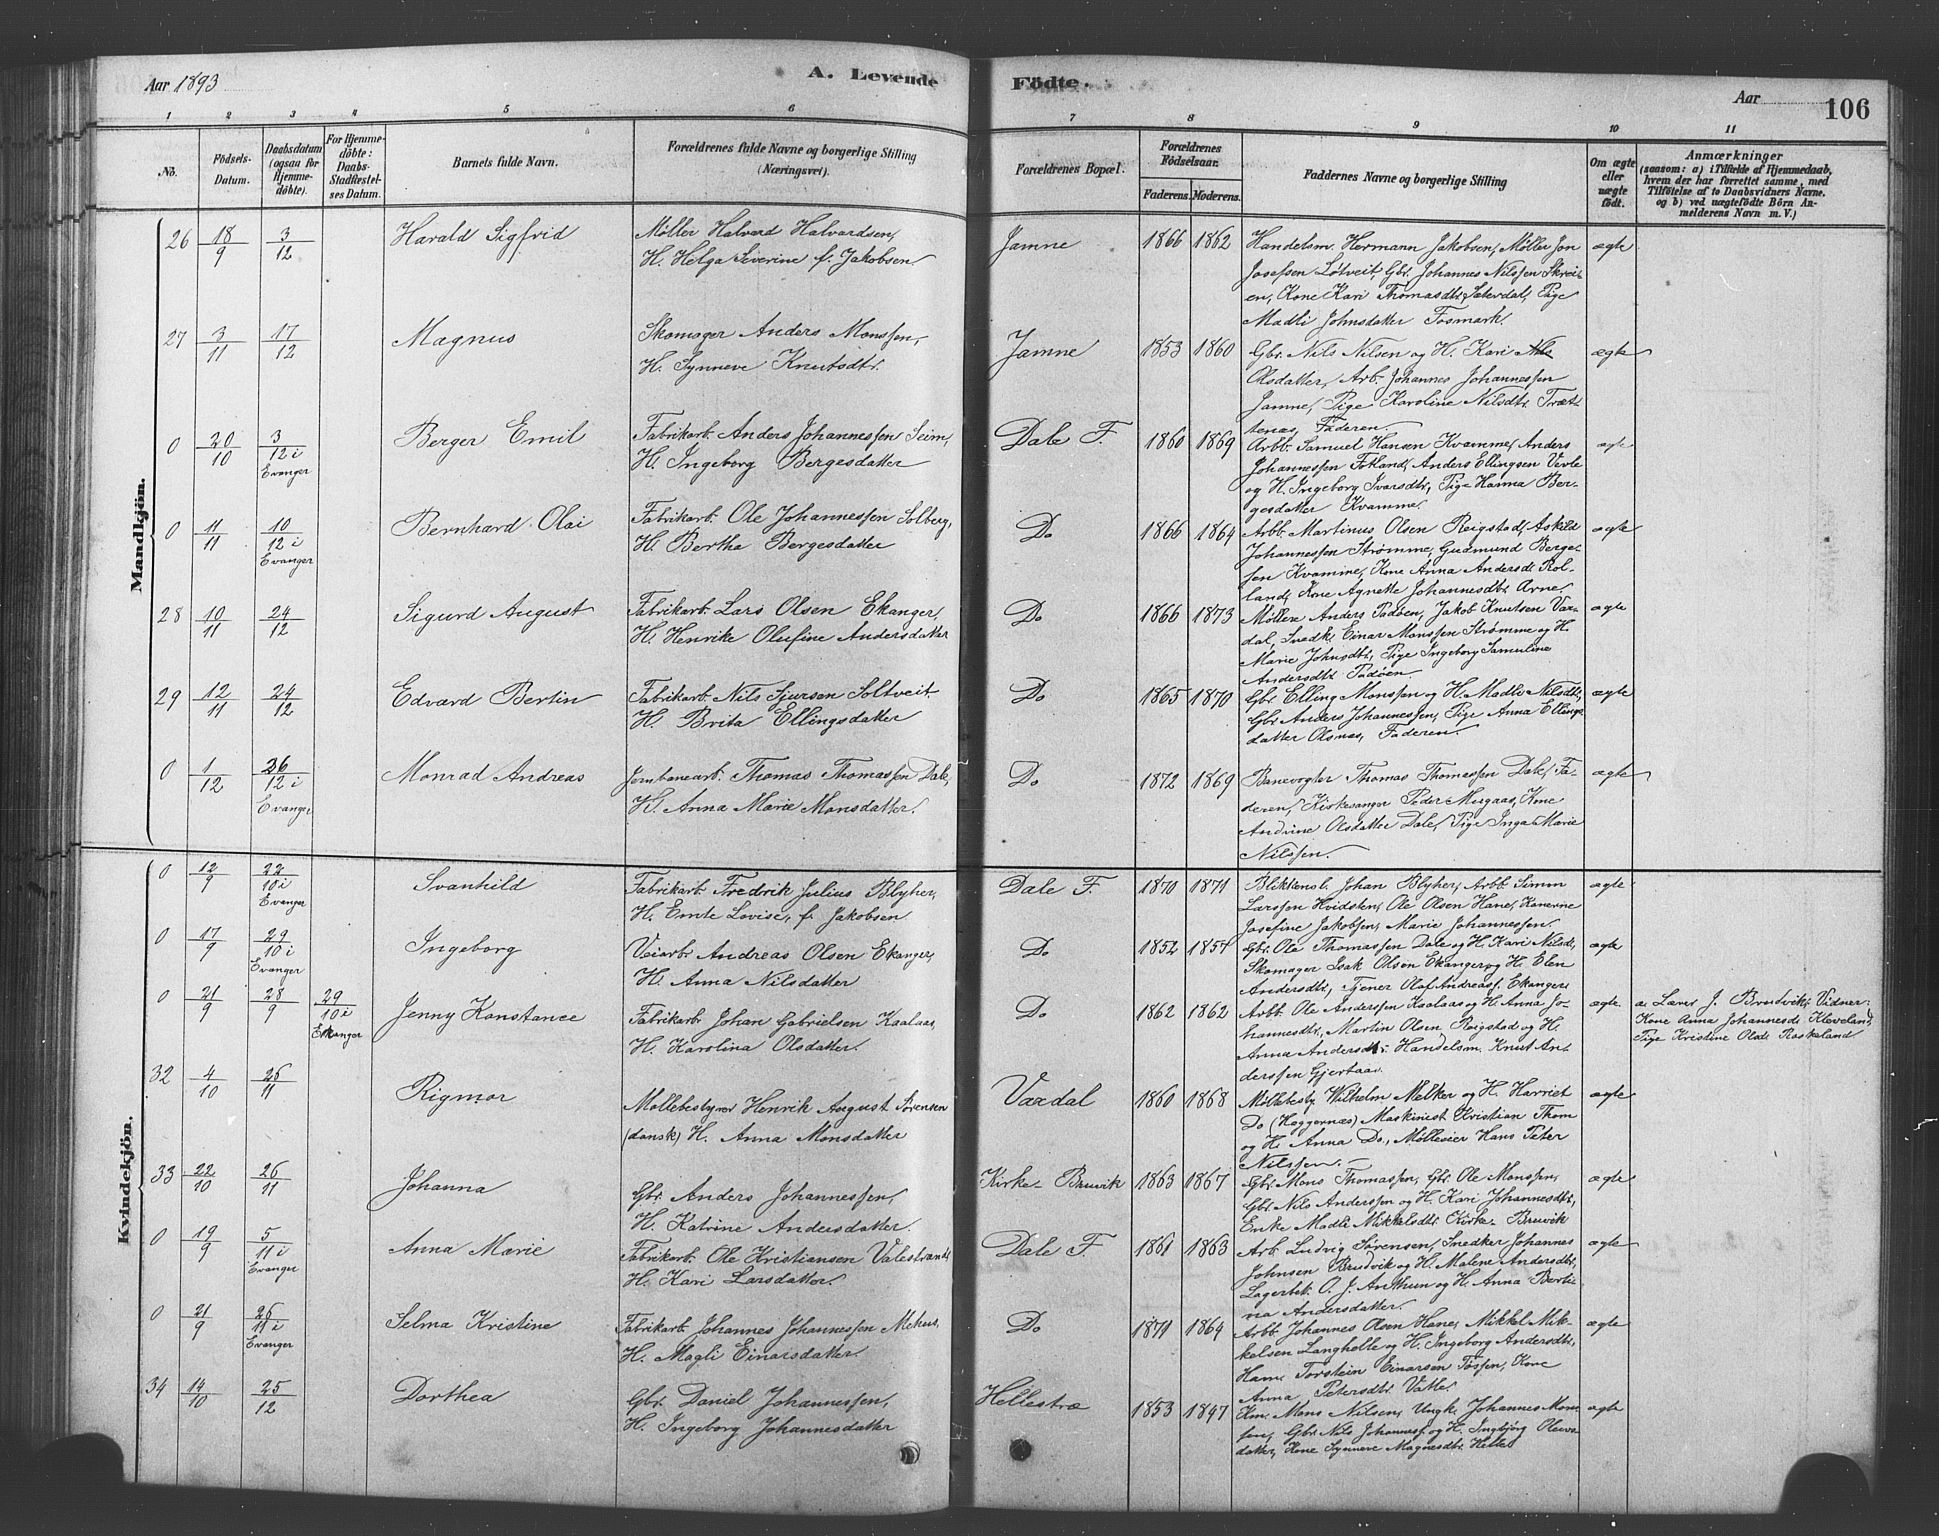 Aar 1893
A. Levende
Födte.
Aar
106
1 2 3 4 5 6 7 8 9 10 11
No.
Födsels-Datum.
Daabsdatum (ogsaa for Hjemme-döbte).
For Hjemme-döbte: Daabs Stadfæstel-ses Datum.
Barnets fulde Navn.
Forældrenes fulde Navne og borgerlige Stilling (Næringsvei).
Forældrenes Bopæl.
Forældrenes Födselsaar.
Faderens. Moderens.
Faddernes Navne og borgerlige Stilling
Om ægte eller uægte födt.
Anmærkninger
(saasom: a) i Tilfælde af Hjemmedaab,
hvem der har forrettet samme, med
Tilföielse af to Daabsvidners Navne.
og b) ved uægtefödte Börn An-
melderens Navn m. V.)
Mandkjön.
26 18/9 3/12 Harald Sigfrid Møller Halvard Halvardsen, Jamne 1866 1862 Handelsm. Hermann Jakobsen, Møller Jon ægte
H. Helga Severine f. Jakobsen. Josefsen Løtveit, Gbr. Johannes Nilssen Skrei-
en, Kone Kari Thomasdtr. Sæterdal, Pige
Madli Johnsdatter Fosmark.
27 3/11 17/12 Magnus Skomager Anders Monssen, Jamne 1853 1860 Gbr. Nils Nilsen og H. Kari ægte
H. Synneve Knutsdtr. Olsdatter, Arb. Johannes Johannessen
Jamne, Pige Karoline Nilsdtr. Træt-
tenæs, Faderen.
0 20/10 3/12 i Evanger Berger Emil Fabrikarb. Anders Johannessen Seim, Dale F. 1860 1869 Arbb. Samuel Hansen Kvamme, Anders ægte
H. Ingeborg Bergesdatter Johannessen Fotland, Anders Ellingsen Vevle
og H. Ingeborg Ivarsdtr., Pige Hanna Ber-
gesdatter Kvamme.
0 11/11 10/12 i Evanger Bernhard Olai Fabrikarb. Ole Johannessen Solberg, Do 1866 1864 Arbb. Martinus Olsen Reigstad, Askild ægte
H. Bertha Bergesdatter Johannessen Strømme, Gudmund Berge-
sen Kvamme, Kone Anna Andersdt. Rol-
land, Kone Agnette Johannesdtr. Arne.
28 10/11 24/12 Sigurd August Fabrikarb. Lars Olsen Ekanger, Do 1866 1873 Møllere Anders Padøen, Jakob Knutsen Vax- ægte
H. Henrike Olufine Andersdatter dal, Snedk. Einar Monssen Strømme og H.
Marie Johnsdtr., Pige Ingeborg Samuline
Andersdtr. Padøen.
29 12/11 24/12 Edvard Bertin Fabrikarb. Nils Sjursen Soltveit. Do 1865 1870 Gbr. Elling Monssen og H. Madli Nilsdtr. ægte
H. Brita Ellingsdatter Gbr. Anders Johannessen, Pige Anna Ellings-
datter Olsnes, Faderen.
0 1/12 26/12 i Evanger Monrad Andreas Jernbanearb. Thomas Thomassen Dale, Do 1872 1869 Banevogter Thomas Thomassen Dale, Fa- ægte
H. Anna Marie Monsdatter. deren, Kirkesanger Peder Mugaas, Kone
Andrine Olsdatter Dale, Pige Inga Marie
Nilssen.
Kvindekjön.
0 12/9 22/10 i Evanger Svanhild Fabrikarb. Fredrik Julius Blyher, Dale F. 1870 1871 Bliktensl. Johan Blyher, Arbb. Simon ægte
H. Emte Lovise, f. Jakobsen Larssen Hvidsten, Ole Olsen Hane, Konerne
Josefine Jakobsen, Marie Johannessen.
0 17/9 29/10 i Evanger Ingeborg Veiarb. Andreas Olsen Ekanger, Do 1852 1857 Gbr. Ole Thomassen Dale og H. Kari Nilsdt., ægte
H. Anna Nilsdatter Skomager Isak Olsen Ekanger og H. Elen
Andersdtr., Tjener Olaf Andreasf. Ekanger.
0 21/9 28/9 29/10 i Evanger Jenny Konstance Fabrikarb. Johan Gabrielsen Kaalaas, Do 1862 1862 Arbb. Ole Anderssen Kaalaas og H. Anna Jo- ægte. a. Lærer J. Brudvik. Vidner:
H. Karolina Olsdatter. hannesdtr., Martin Olsen Reigstad og H. Kone Anna Johannesdt. Kleveland,
Anna Andersdtr. Handelsm. Knut An- Pige Kristine Olsdt. Raskeland
derssen Gjertaas.
32 4/10 26/11 Rigmor Møllebestyrer Henrik August Sørensen Vaxdal 1860 1868 Møllebesty. Wilhelm Melker og H. Harriet ægte
(dansk) H. Anna Monsdatter Do (Haggernæs) Maskinist Kristian Thom
og H. Anna Do., Møllevier Hans Peter
Nilssen.
33 22/10 26/11 Johanna Gbr. Anders Johannessen, Kirke-Bruvik 1863 1867 Gbr. Mons Thomassen, Gbr. Ole Monssen, ægte
H. Katrine Andersdatter. Gbr. Nils Anderssen og H. Kari Johannesdtr,
Enke Madli Mikkelsdtr. Kirke-Bruvik
0 19/9 5/11 i Evanger Anna Marie Fabrikarb. Ole Kristiansen Valestrand, Dale F. 1861 1863 Arb. Ludvig Sørensen, Snedker Johannes ægte
H. Kari Larsdatter. Johnsen Brudvik og H. Malene Andersdtr,
Lagerbet. O. J. Anthun og H. Anna Berti-
na Andersdatter.
0 21/9 26/11 i Evanger Selma Kristine Fabrikarb. Johannes Johannessen Mehus, Do 1871 1864 Arbb. Johannes Olsen Hane, Mikkel Mik- ægte
H. Magli Einarsdatter. kelsen Langhelle og H. Ingeborg Andersdtr.
Ham. Torstein Einarsen Fossen, Kone
Anna Petersdtr. Vatle.
34 14/10 25/12 Dorthea Gbr. Daniel Johannessen, Hellestræ 1853 1847 Km. Mons Nilsen, Ungk. Johannes Mons- ægte
H. Ingeborg Johannesdatter sen, Gbr. Nils Johannesf. og H. Ingbjørg Olews-
datter, Kone Synneve Magnesdtr. Helle